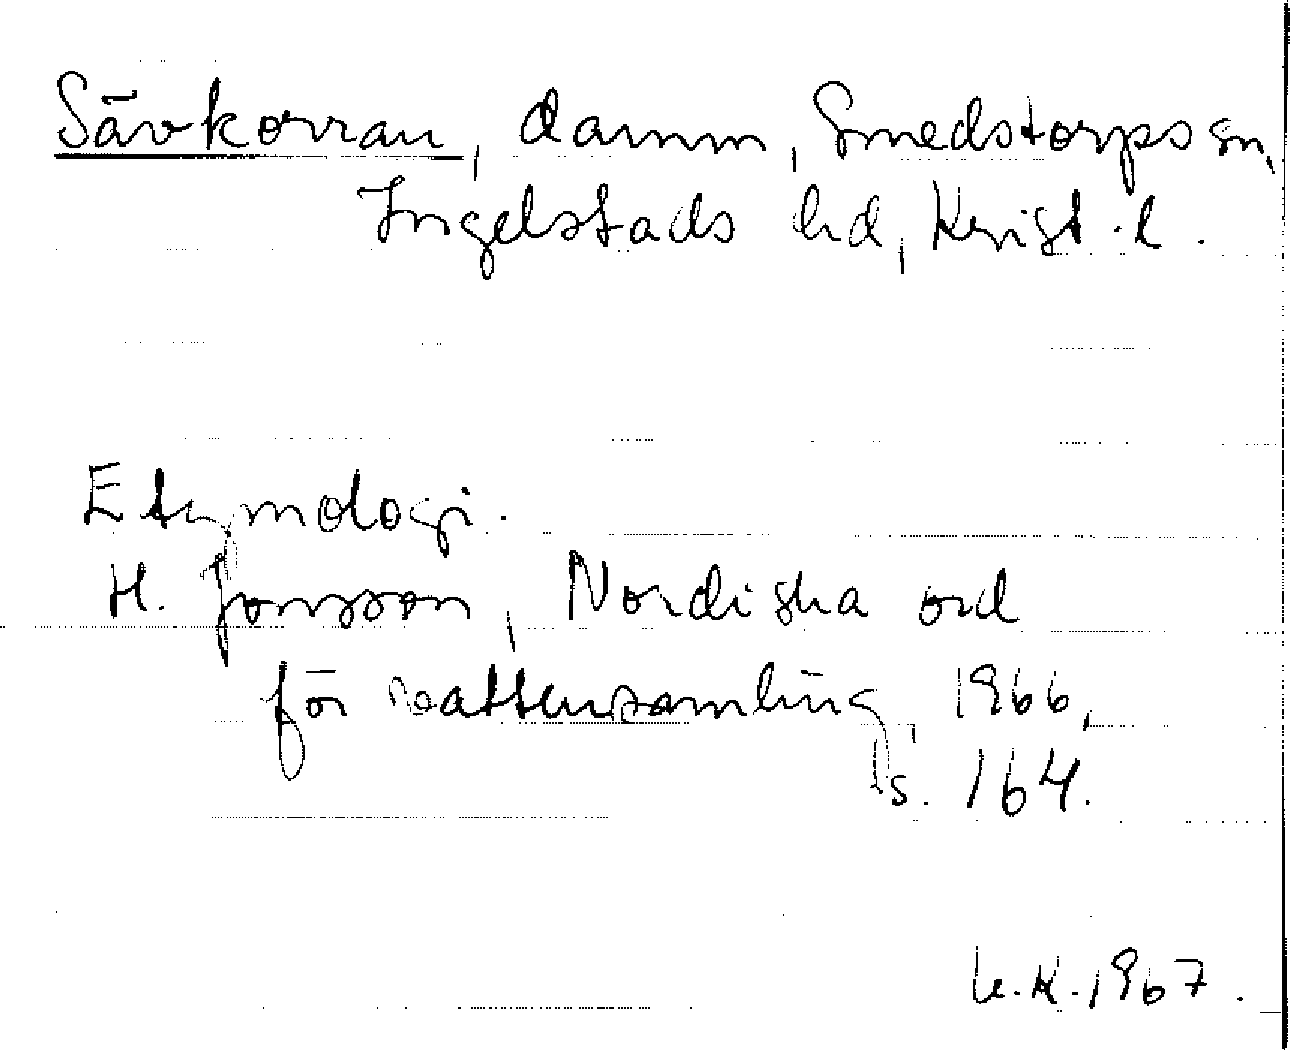 Sävkorran, damm, Smedstorps sn,
Ingelstads hd, Krist. l.
Etymologi.
H. Jonsson, Nordiska ord
för vattensamling, 1966,
s. 164.
K. 1967.